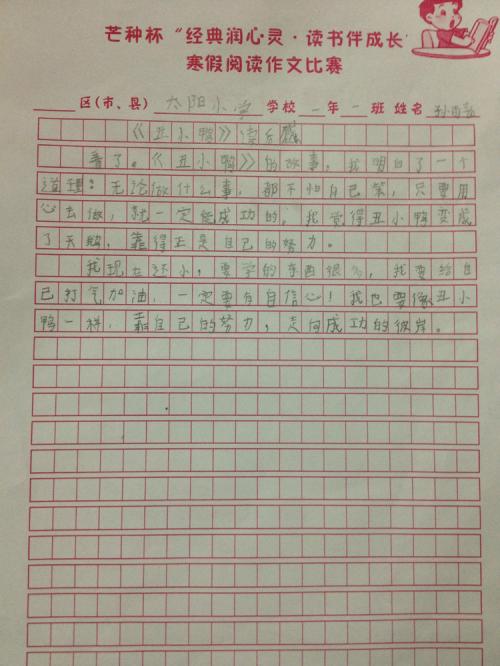 芒种杯“经典润心灵·读书伴成长”
寒假阅读作文比赛
区(市、县) 太阳小学 学校 一 年 一 班 姓名 孙
《丑小鸭》读后感
看了《丑小鸭》的故事,我明白了一个
道理:无论做什么事,都不怕自己笨,只要用
心去做,就一定能成功的,我觉得丑小鸭变成
了天鹅,靠得正是自己的努力。
我现在还小,要学的东西很多,我要给自
己打气加油,一定要有自信心!我也要像丑小
鸭一样,靠自己的努力,走向成功的彼岸。